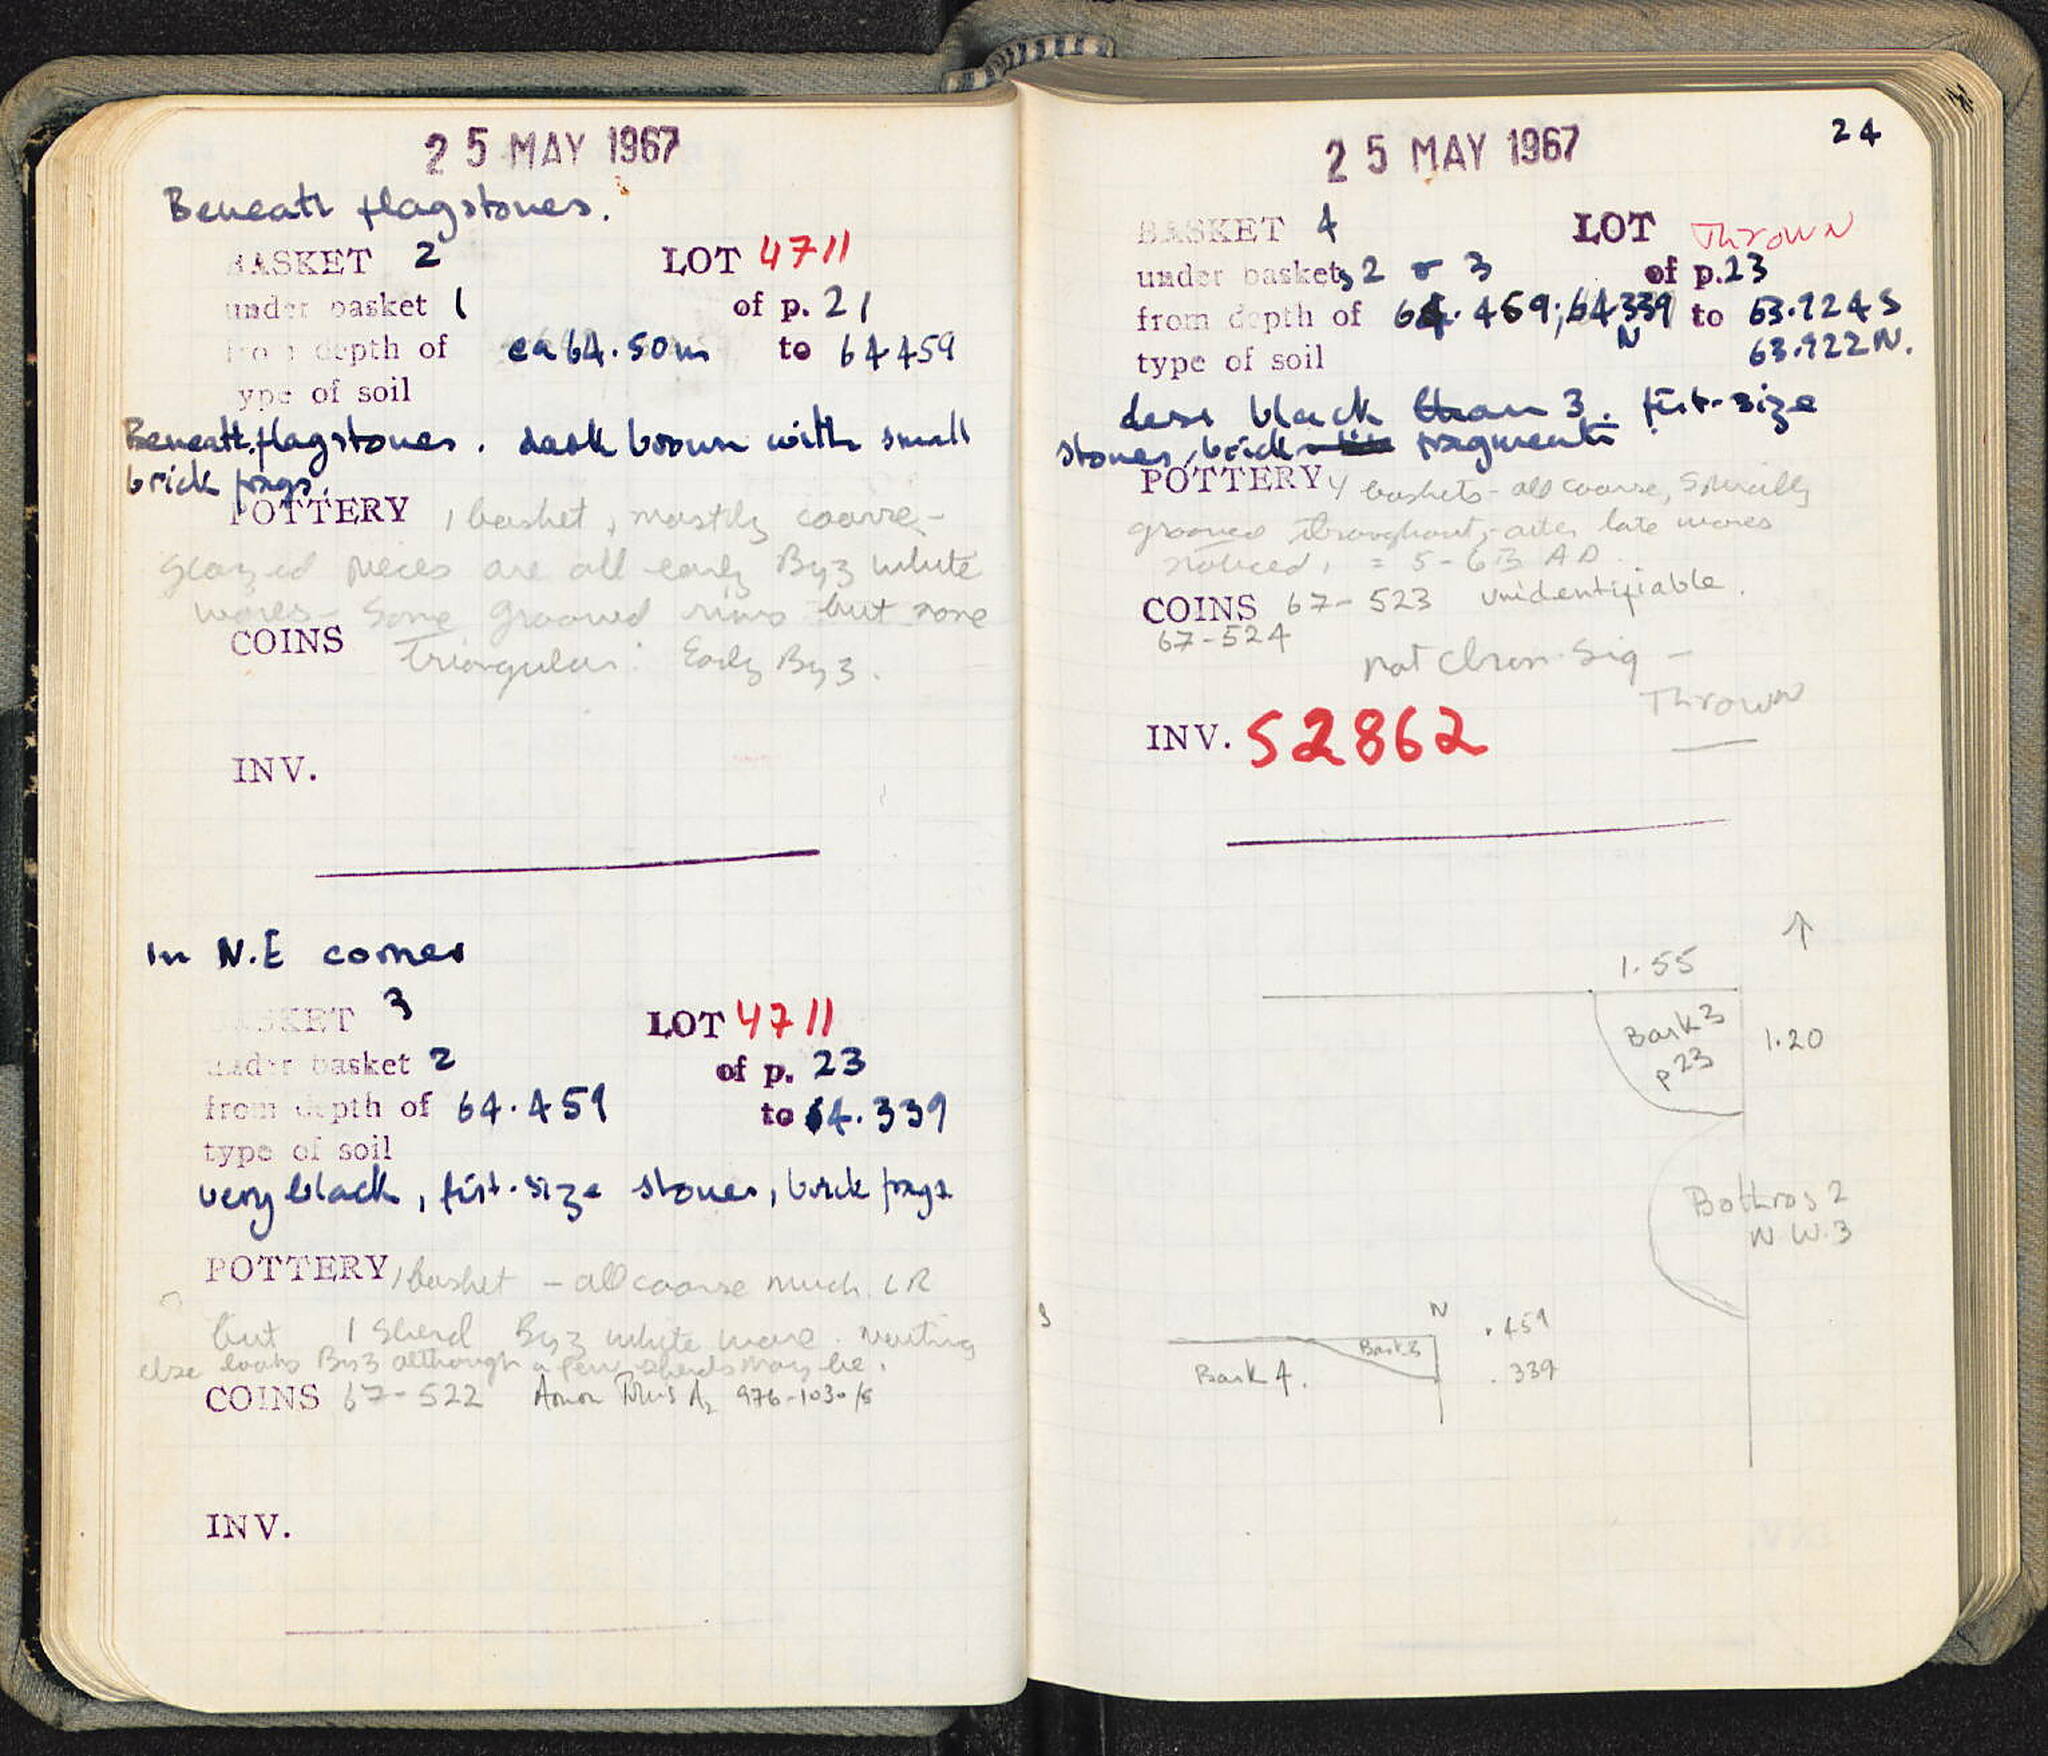 25 MAY 1967
Beneath flagstones.
BASKET 2 LOT 4711
under basket 1 of p. 21
from depth of ca 64.50m to 64459
type of soil
Beneath flagstones. dark brown with small
brick frags.
POTTERY 1 basket, mostly coarse -
glazed pieces are all early Byz white
wares - Some grooved rims but none
COINS triangular: Early Byz.
INV.
In N.E corner
BASKET 3 LOT 4711
under basket 2 of p. 23
from depth of 64.459 to 64.339
type of soil
very black, fist-size stones, brick frags
POTTERY 1 basket - all coarse much LR
but 1 sherd Byz white ware. nothing
else looks Byz although a few sherds may be.
COINS 67-522 Anon Folis A2 976-1030/5
INV.
24
25 MAY 1967
BASKET 4 LOT Thrown
under baskets 2 & 3 of p. 23
from depth of 64.459; 64339 N to 63.924 S
63.922 N.
type of soil
less black than 3. fist-size
stones, brick fragments
POTTERY 4 baskets - all coarse, spirally
grooved throughout, - late wares
noticed, = 5-6 AD
COINS 67-523 unidentifiable.
67-524
not Chron. Sig -
Thrown
INV. S2862
1.55
Bask 3
p 23
1.20
Bothros 2
N W.3
N
.459
Bask 3
Bask 4.
.339